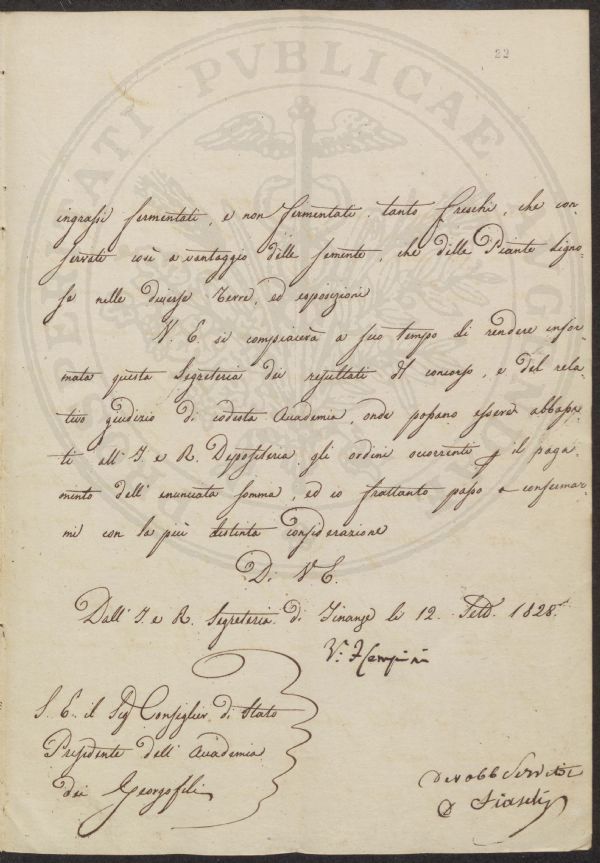 22
ingrassi fermentati, e non fermentati, tanto freschi, che con-
servati così a vantaggio delle semente, che delle Piante ligno-
se nelle diverse Terre, ed esposizioni
V. E. si compiacerà a suo tempo di rendere infor-
mata questa Segreteria dei resultati del concorso, e del rela-
tivo giudizio di codesta Accademia, onde possano essere abbassa-
ti all' I. e R. Depositeria gli ordini occorrenti il paga-
mento dell' enunciata somma, ed io frattanto passo a confermar-
mi con la più distinta considerazione
Di V E.
Dall' I. e R. Segreteria di Finanze li 12. 1828.
S. E. il Sig Consiglier di Stato
Presidente dell' Accademia
dei Georgofili